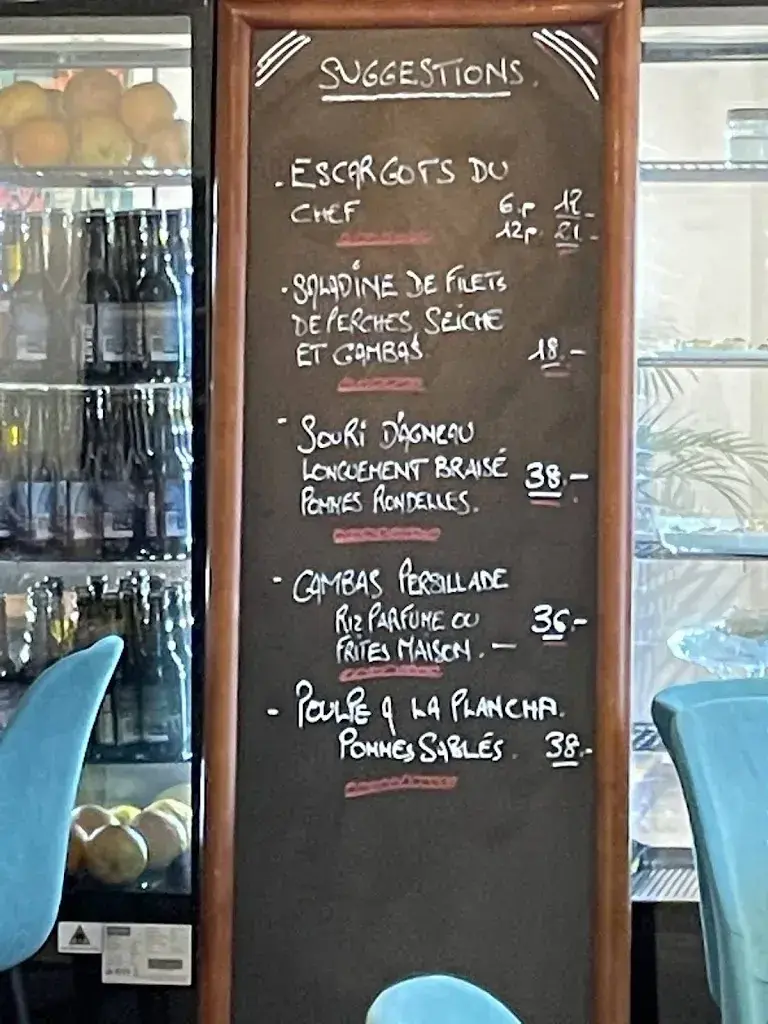 SUGGESTIONS.
. ESCARGOTS DU
CHEF 6.p 12.-
12p. 21.-
. SALADINE DE FILETS
DE PERCHES, SEICHE
ET GAMBAS 18.-
- SOURI D'AGNEAU
LONGUEMENT BRAISÉ 38.-
POMMES RONDELLES.
- GAMBAS PERSILLADE
RIZ PARFUME OU 36.-
FRITES MAISON. -
- POULPE A LA PLANCHA.
POMMES SABLÉS. 38.-